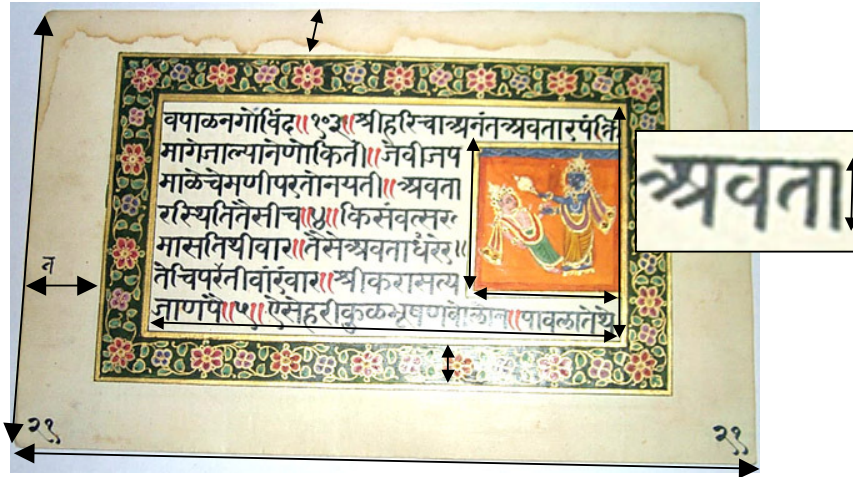 वपाळनगोविंद॥१०३॥श्रीहरिचाअनंतअवतारपंक्ति
मागेजाल्यानेणोकिती॥जेवीजप
माळेचेमणीपरतोनयती॥अवता
रस्थितितैसीच॥४॥किसंवत्सर
मासतिथीवार॥तैसेअवताधरर॥
तेचिपरतीवारंवार॥श्रीकरासत्य
जाणपै॥५॥ऐसेहरीकुळभूषण॥पावलातेथ
अवता
न
२१
२१